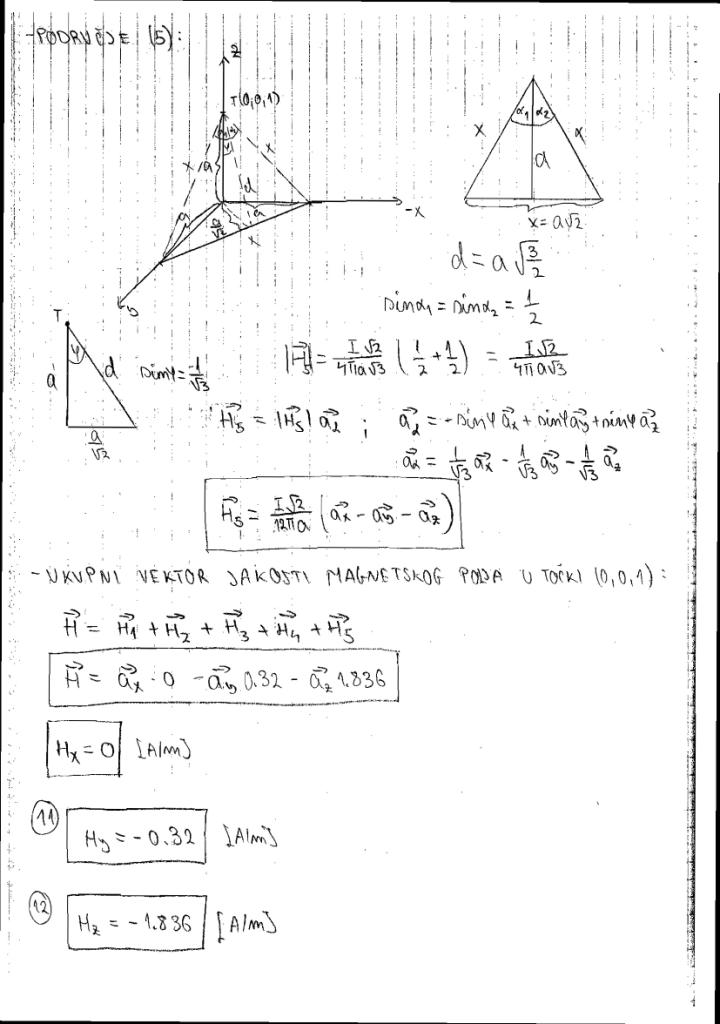 - PODRUČJE (5):
z
T(0,0,1)
α1 α2
x
a
x = a√2
-x
y
d = a√(3/2)
sinα1 = sinα2 = 1/2
T
a
φ
d
a/√2
sinφ = 1/√3
|H⃗5| = I√2/(4πa√3) (1/2 + 1/2) = I√2/(4πa√3)
H⃗5 = |H⃗5| a⃗α ; a⃗α = -sinφ a⃗x + sinφ a⃗y + sinφ a⃗z
a⃗α = 1/√3 a⃗x - 1/√3 a⃗y - 1/√3 a⃗z
H⃗5 = I√2/(12πa) (a⃗x - a⃗y - a⃗z)
- UKUPNI VEKTOR JAKOSTI MAGNETSKOG POLJA U TOČKI (0,0,1):
H⃗ = H⃗1 + H⃗2 + H⃗3 + H⃗4 + H⃗5
H⃗ = a⃗x · 0 - a⃗y 0.32 - a⃗z 1.836
Hx = 0 [A/m]
11 Hy = -0.32 [A/m]
12 Hz = -1.836 [A/m]